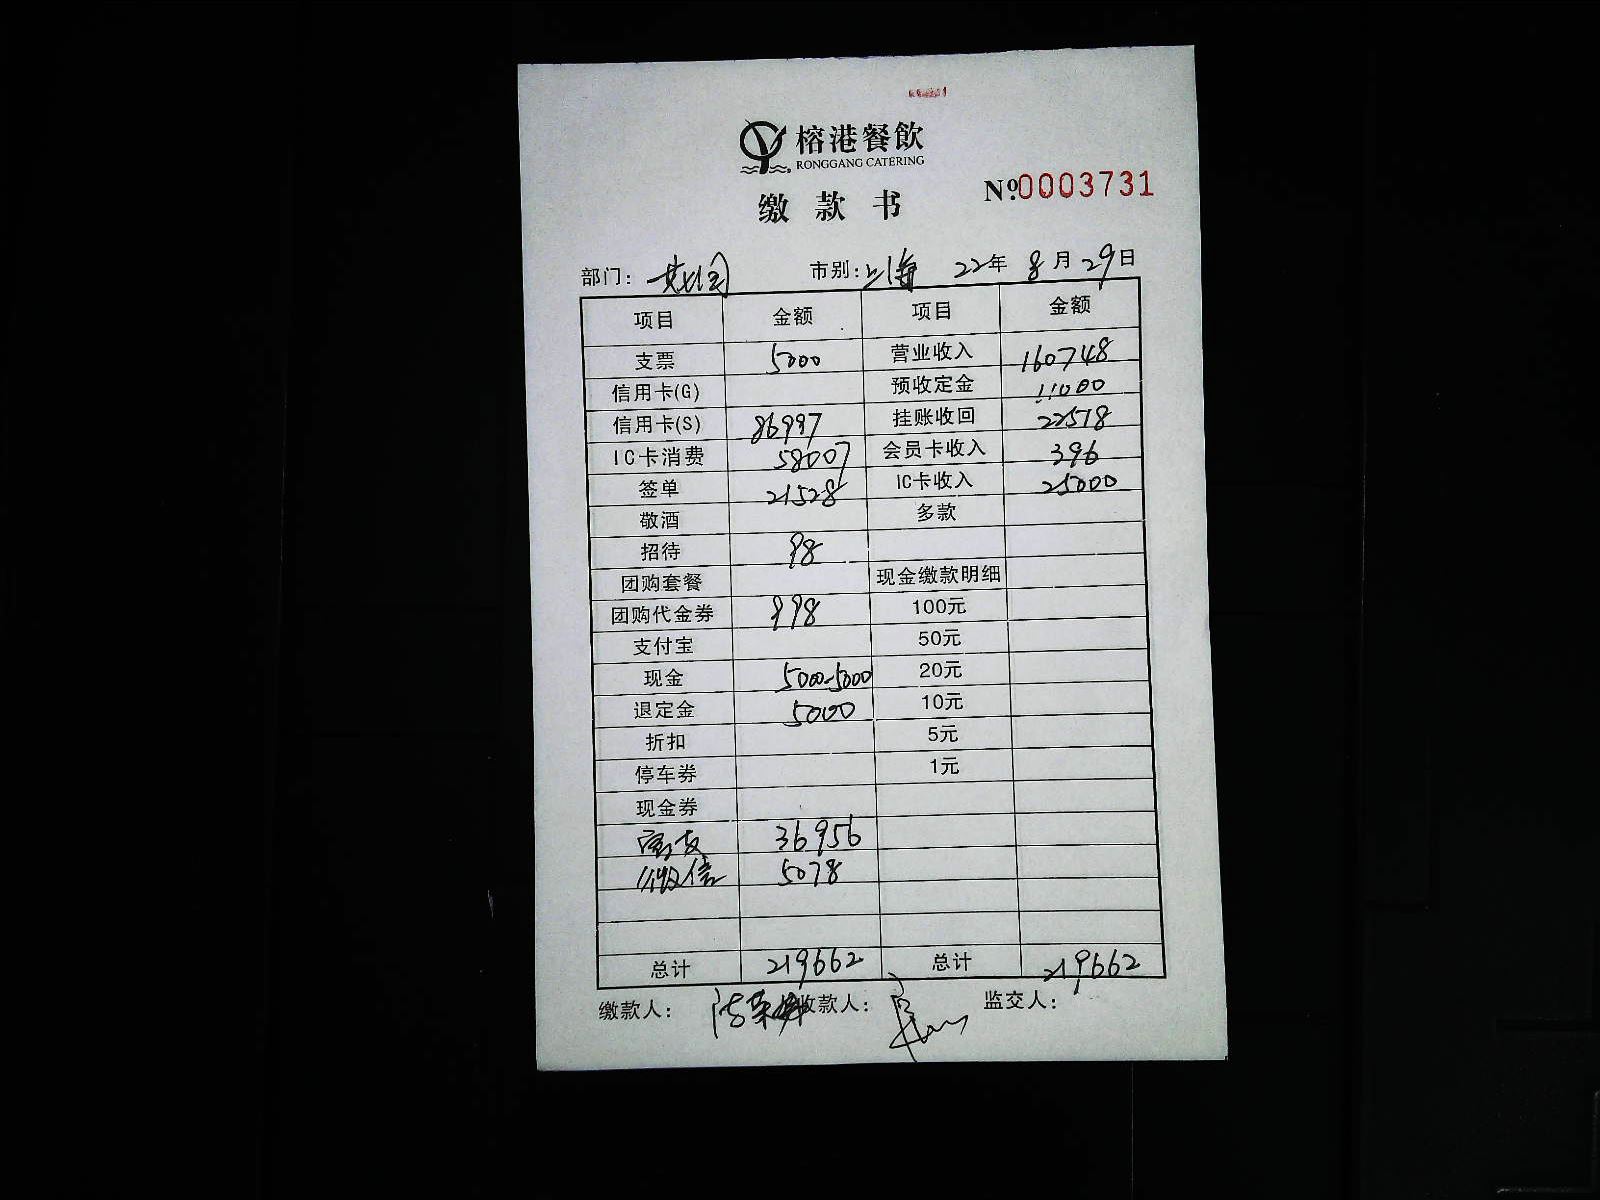 榕港餐飲
RONGGANG CATERING
缴款书 Nº.0003731
部门: 市别: 上海 22年 8月29日
项目 金额 项目 金额
支票 5000 营业收入 160748
信用卡(G) 预收定金 11000
信用卡(S) 86997 挂账收回 22518
IC卡消费 58007 会员卡收入 396
签单 21528 IC卡收入 25000
敬酒 多款
招待 98
团购套餐 现金缴款明细
团购代金券 998 100元
支付宝 50元
现金 5000-5000 20元
退定金 5000 10元
折扣 5元
停车券 1元
现金券
36956
微信 5078
总计 219662 总计 219662
缴款人: 收款人: 监交人: